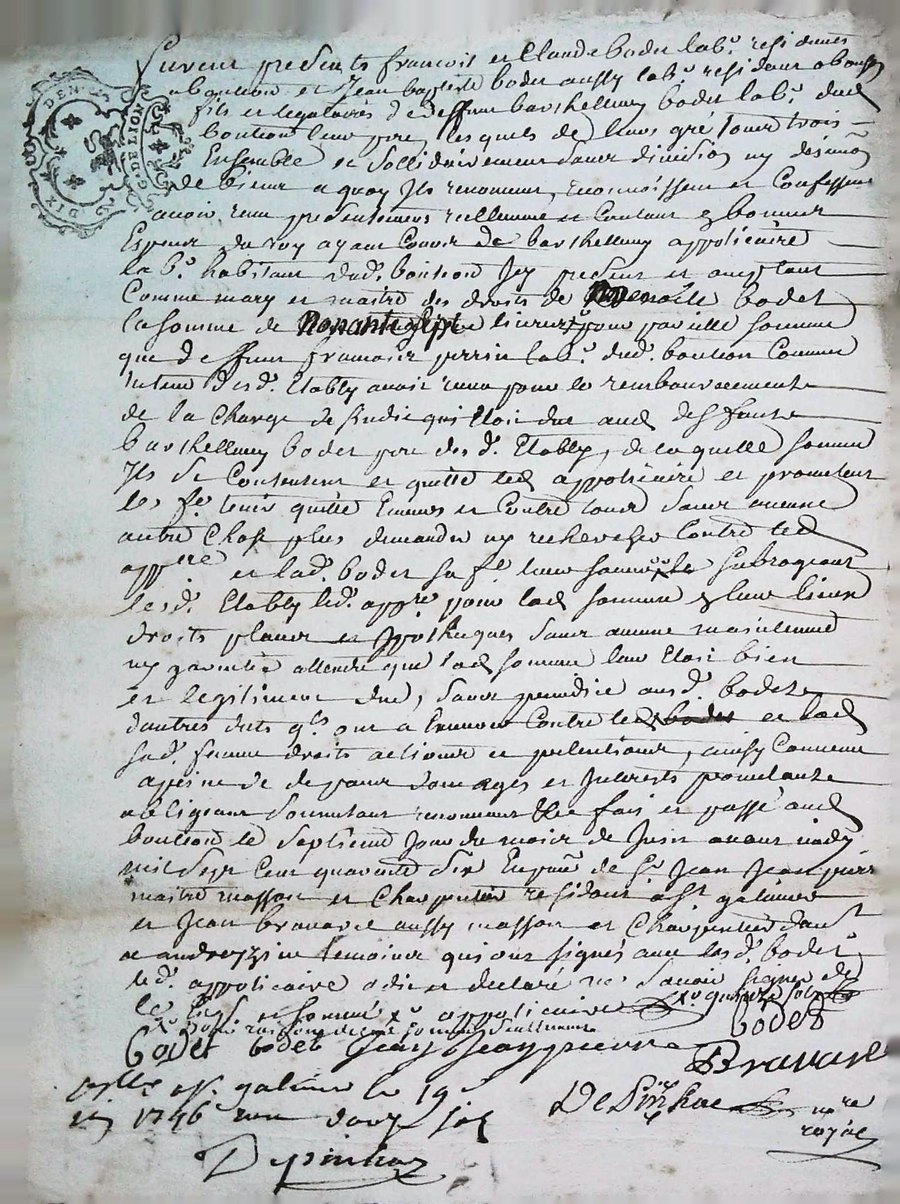 DIX DENI
GNDELYON
furent presents francois et Claude bodet lab.r residents
a bouteon et Jean baptiste bodet aussy lab.r resident a bonson
fils et legataires de deffunt barthellemy bodet lab.r dud
bouteon leur pere, lesquels de leurs gré tous trois
Ensemble et sollidairement sans division ny
de biens a quoy ils renoncent, reconnoissent et Confessent
avoir receu presentement reellement et Contant en bonnes
Especes du roy ayant Cours de barthellemy appoticaire
lab.r habitant dud. bouteon Icy present et aceptant
Comme mary et maitre des droits de benoite bodet
la somme de Nonante sept livres pour pareille somme
que deffunt francois perrin lab.r dud. bouteon Comme
tuteur desd. Etably avoit receu pour le remboursement
de la Charge de sindic qui Etoit due aud deffunt
barthellemy bodet pere desd. Etably, de laquelle somme
Ils se Contentent et quitte led appoticaire et promettent
les f.e tenir quitte Envers et Contre tous sans aucune
autre Chose plus demander ny rechercher Contre led
app.re et lad. bodet sa f.e subrogeant
lesd. Etably led. app.re pour lad somme en leur lieux
droits places et hypotheques sans aucune maintenue
ny garantie attendu que lad somme leur Etoit bien
et legitiment due, sans prejudice ausd. bodet
d'autres droits qls ont a Contre led bodet et lad
sad. femme droits actions et pretentions, ainsy Convenu
a peine de de tous domages et Interests promettants
obligeant soumettant renonceant &c fait et passé aud
bouteon le septieme Jour du mois de Juin avant midy
mil sept cent quarante six En pnce de s.r Jean Jeanpierre
maitre masson et Charpentier residant a st galmier
et Jean bravard aussy masson et Charpentier dans
a andrezy temoins qui ont signés avec lesd. bodet
led. appoticaire a dit et declaré ne savoir signer de
ce Enq. et sommé x.o appoticaire x.o quinze sols
x.o pour raison de que
bodet
bodet bodet Jean Jeanpierre
Bravard
Con.lle a st. galmier le 19e
in 1746 receu douze sols
De Pinhac n.re
royal
Depinhac